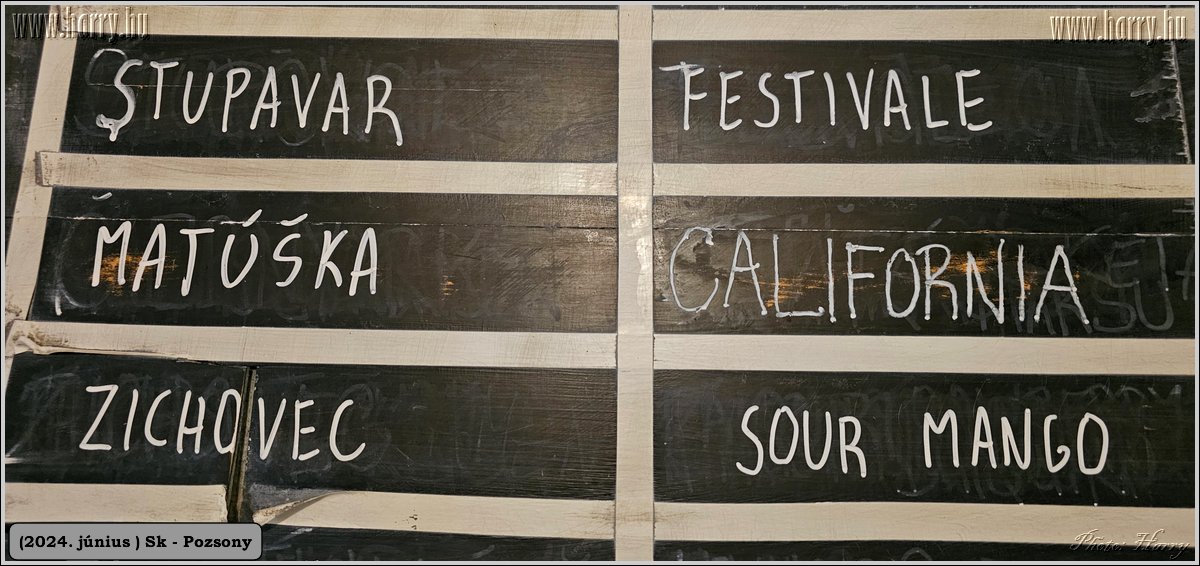 www.horry.hu www.horry.hu
STUPAVAR FESTIVALE
MATÚŠKA CALIFORNIA
ZICHOVEC SOUR MANGO
(2024. június ) Sk - Pozsony
Photo: Horry